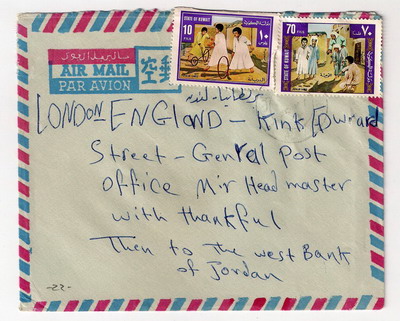 AIR MAIL
PAR AVION
STATE OF KUWAIT
10 FILS ١٠
STATE OF KUWAIT
70 FILS ٧٠
LONDON ENGLAND - Kink Edward
Street - Genral Post
Office Mir Head master
with thankful
Then to the west Bank
of Jordan
-22-